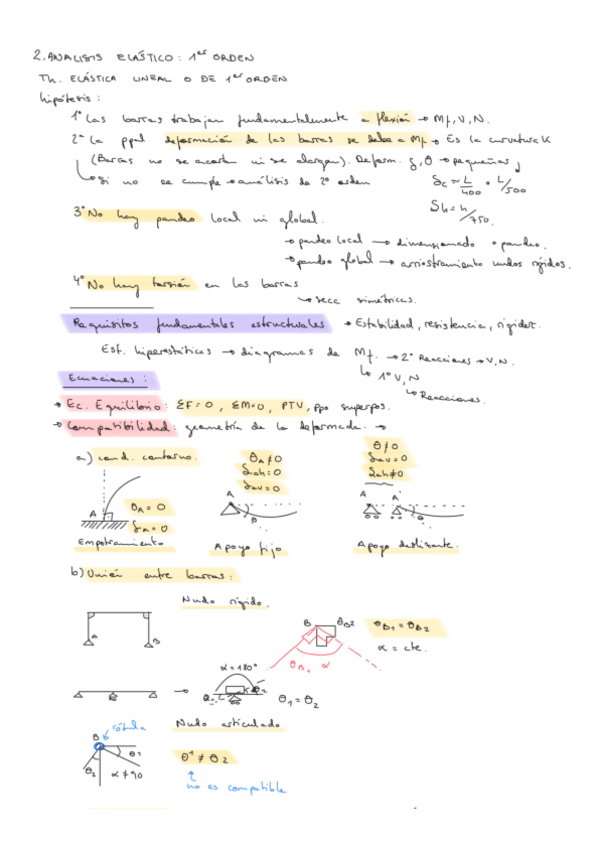 2. ANALISIS ELÁSTICO: 1er ORDEN
TH. ELÁSTICA LINEAL O DE 1er ORDEN
hipótesis:
1º Las barras trabajan fundamentalmente a flexión → Mf, V, N.
2º La ppal deformación de las barras se debe a Mf → Es la curvatura K
(Barras no se acortan ni se alargan). Deform. δ, θ → pequeñas
si no se cumple → análisis de 2º orden
δc ≈ L/400 o L/500
δh = h/750.
3º No hay pandeo local ni global.
→ pandeo local → dimensionado a pandeo.
→ pandeo global → arriostramiento nudos rígidos.
4º No hay torsión en las barras
→ secc simétricas.
Requisitos fundamentales estructurales → Estabilidad, resistencia, rigidez.
Est. hiperestáticas → diagramas de Mf. → 2º Reacciones → V, N.
↳ 1º V, N
↳ Reacciones.
Ecuaciones:
→ Ec. Equilibrio: ΣF = 0, ΣM = 0, PTV, ppo superpos.
→ Compatibilidad: geometría de la deformada. →
a) cond. contorno.
θA ≠ 0
δah = 0
δav = 0
θ ≠ 0
δav = 0
δah ≠ 0
A
θA = 0
δa = 0
A
θ
A A'
Empotramiento
Apoyo fijo
Apoyo deslizante.
b) Unión entre barras:
Nudo rígido.
A
B
B
θB2
θB1
α
θB1 = θB2
α = cte.
→
α = 180º
θ1 = θ2
Nudo articulado
rótula
B
θ1
θ2
α ≠ 90
θ1 ≠ θ2
no es compatible